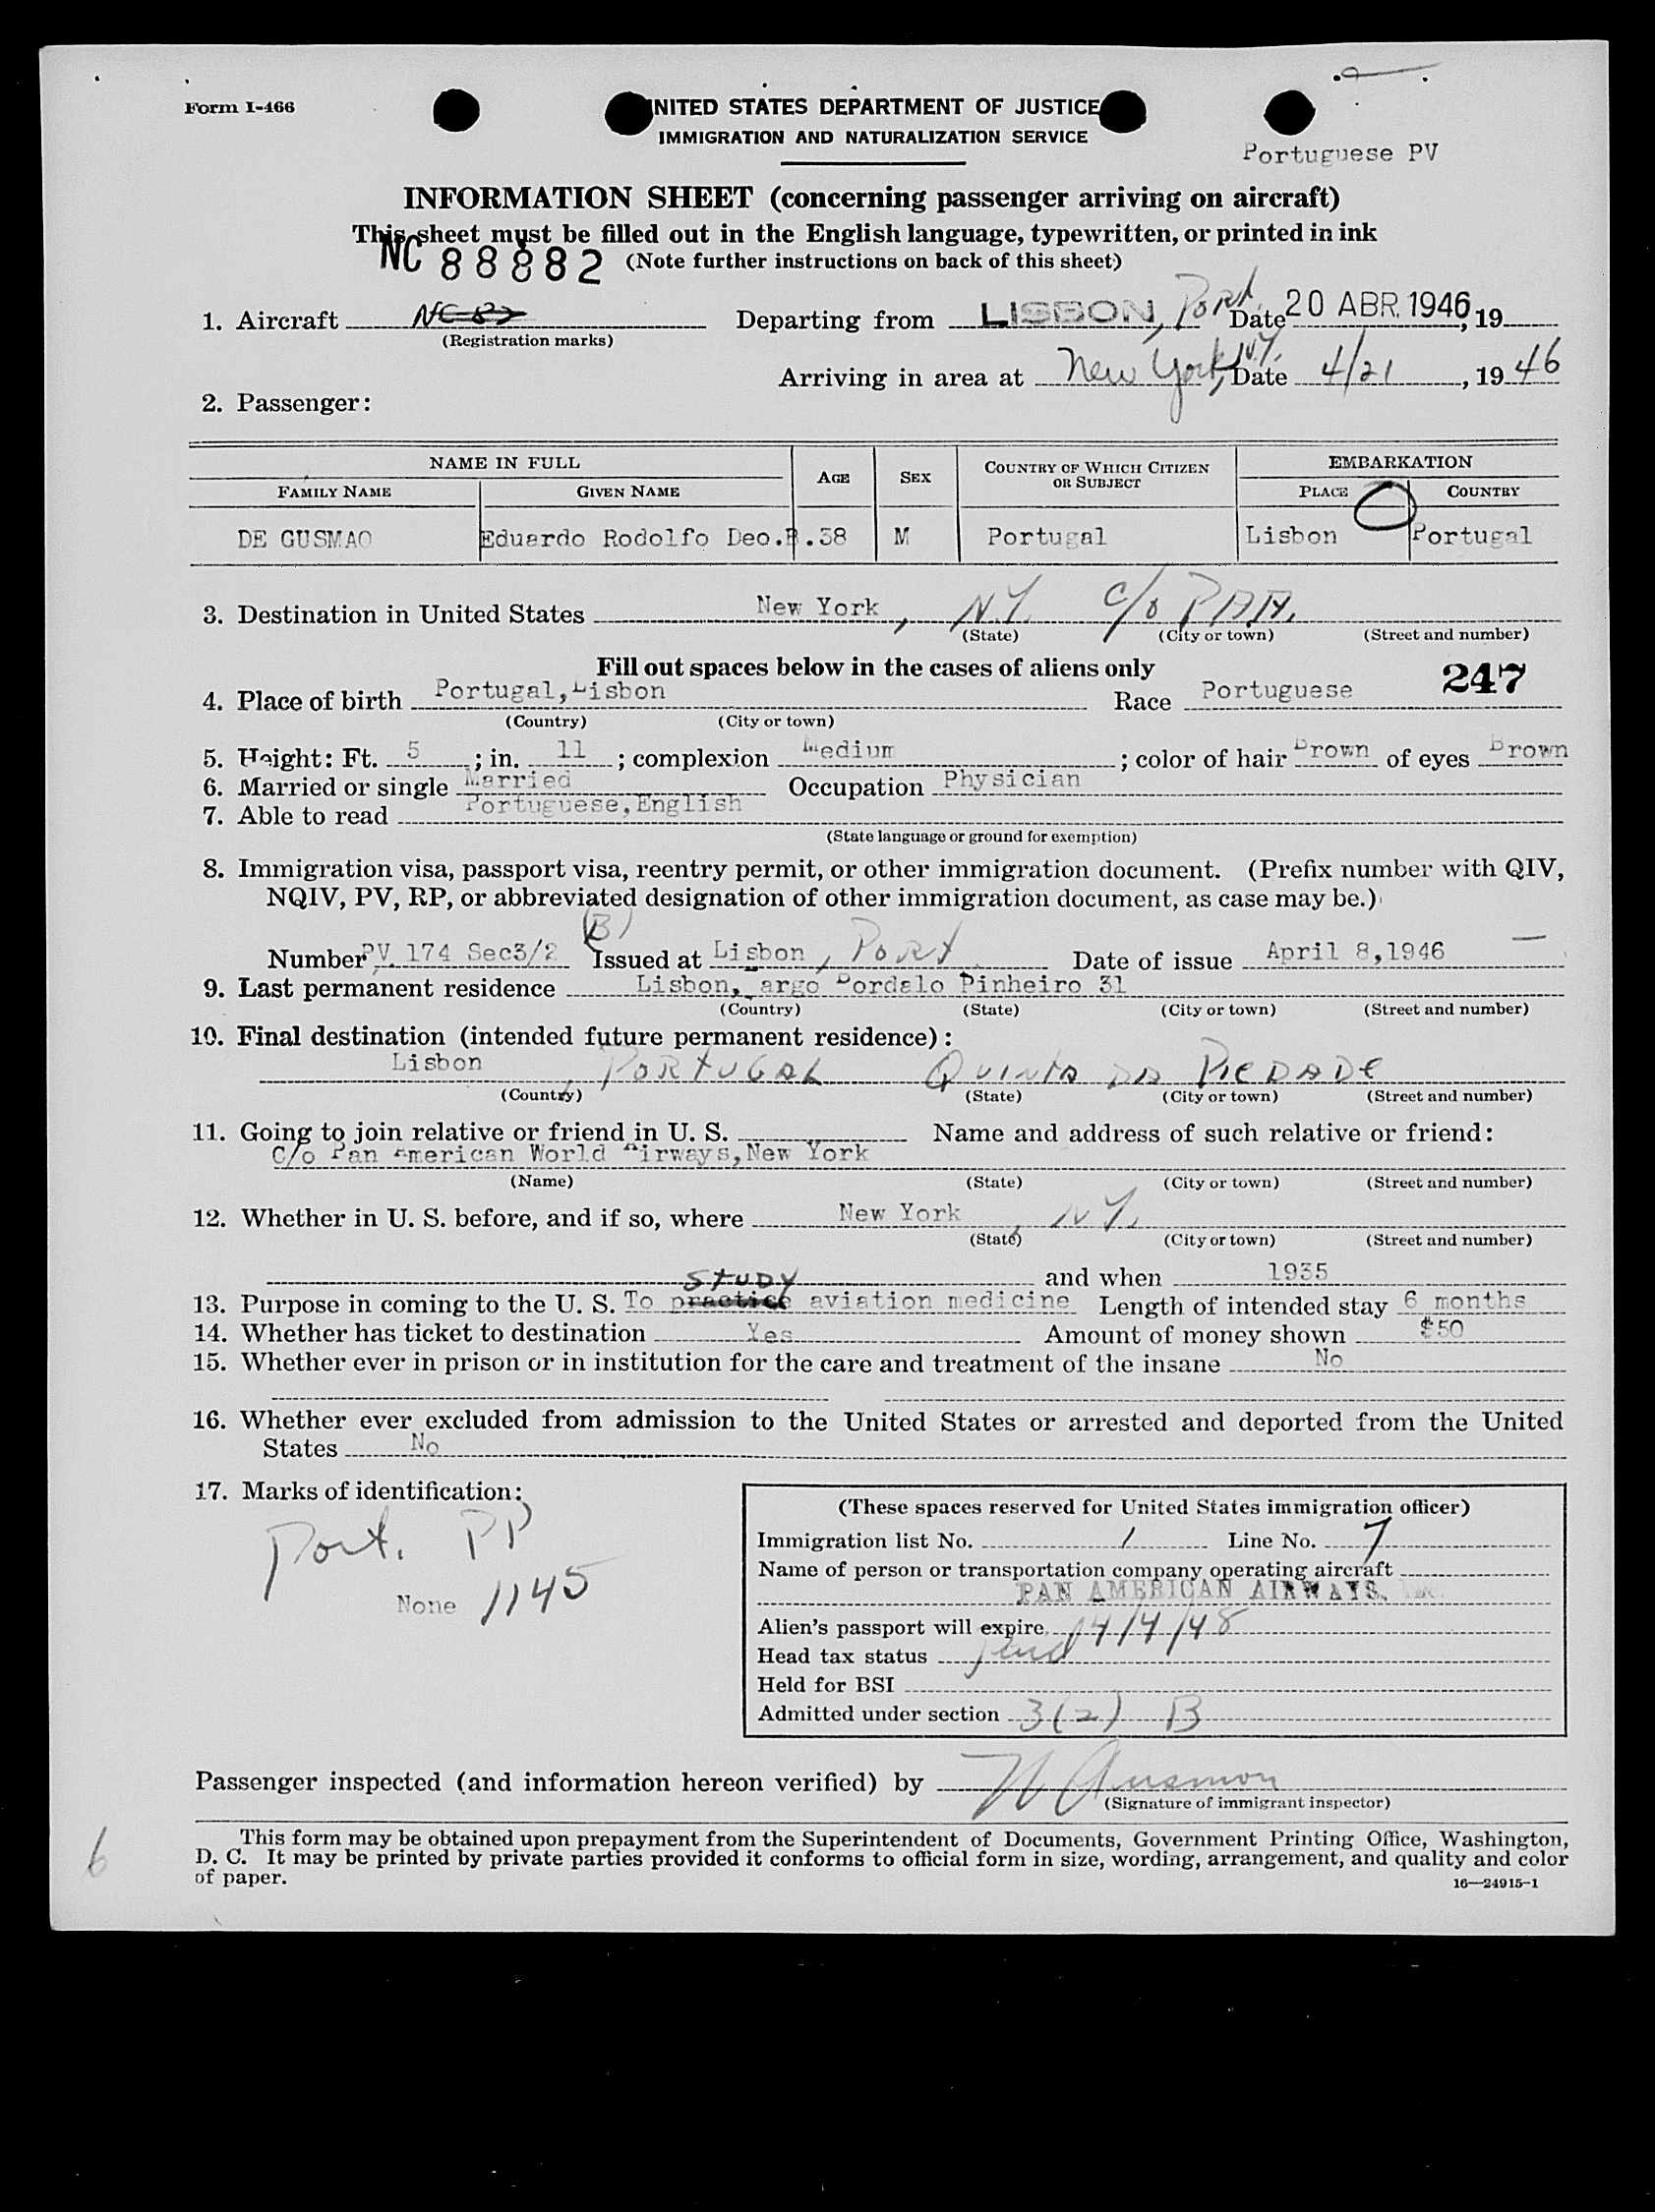 Form I-466
UNITED STATES DEPARTMENT OF JUSTICE
IMMIGRATION AND NATURALIZATION SERVICE
Portuguese PV
INFORMATION SHEET (concerning passenger arriving on aircraft)
This sheet must be filled out in the English language, typewritten, or printed in ink
NC 88882 (Note further instructions on back of this sheet)
1. Aircraft Departing from LISBON, Port. Date 20 ABR. 1946, 19
(Registration marks)
Arriving in area at New York, N.Y. Date 4/21, 19 46
2. Passenger:
NAME IN FULL AGE SEX COUNTRY OF WHICH CITIZEN OR SUBJECT EMBARKATION
FAMILY NAME GIVEN NAME PLACE COUNTRY
DE GUSMAO Eduardo Rodolfo Deo. 38 M Portugal Lisbon Portugal
3. Destination in United States New York, N.Y. c/o PAA.
(State) (City or town) (Street and number)
Fill out spaces below in the cases of aliens only
247
4. Place of birth Portugal, Lisbon Race Portuguese
(Country) (City or town)
5. Height: Ft. 5; in. 11; complexion Medium; color of hair Brown of eyes Brown
6. Married or single Married Occupation Physician
7. Able to read Portuguese, English
(State language or ground for exemption)
8. Immigration visa, passport visa, reentry permit, or other immigration document. (Prefix number with QIV,
NQIV, PV, RP, or abbreviated designation of other immigration document, as case may be.)
Number PV. 174 Sec3/2 (B) Issued at Lisbon, Port Date of issue April 8, 1946
9. Last permanent residence Lisbon, argo Bordalo Pinheiro 31
(Country) (State) (City or town) (Street and number)
10. Final destination (intended future permanent residence):
Lisbon PORTUGAL QUINTA DA PIEDADE
(Country) (State) (City or town) (Street and number)
11. Going to join relative or friend in U. S. Name and address of such relative or friend:
C/o Pan American World Airways, New York
(Name) (State) (City or town) (Street and number)
12. Whether in U. S. before, and if so, where New York, N.Y.
(State) (City or town) (Street and number)
and when 1935
13. Purpose in coming to the U. S. To practice STUDY aviation medicine Length of intended stay 6 months
14. Whether has ticket to destination Yes Amount of money shown $50
15. Whether ever in prison or in institution for the care and treatment of the insane No
16. Whether ever excluded from admission to the United States or arrested and deported from the United
States No
17. Marks of identification:
Port. PP
None 1145
(These spaces reserved for United States immigration officer)
Immigration list No. 1 Line No. 7
Name of person or transportation company operating aircraft
PAN AMERICAN AIRWAYS,
Alien's passport will expire 4/4/48
Head tax status
Held for BSI
Admitted under section 3(2) B
Passenger inspected (and information hereon verified) by
(Signature of immigrant inspector)
This form may be obtained upon prepayment from the Superintendent of Documents, Government Printing Office, Washington,
D. C. It may be printed by private parties provided it conforms to official form in size, wording, arrangement, and quality and color
of paper.
16—24915-1
6